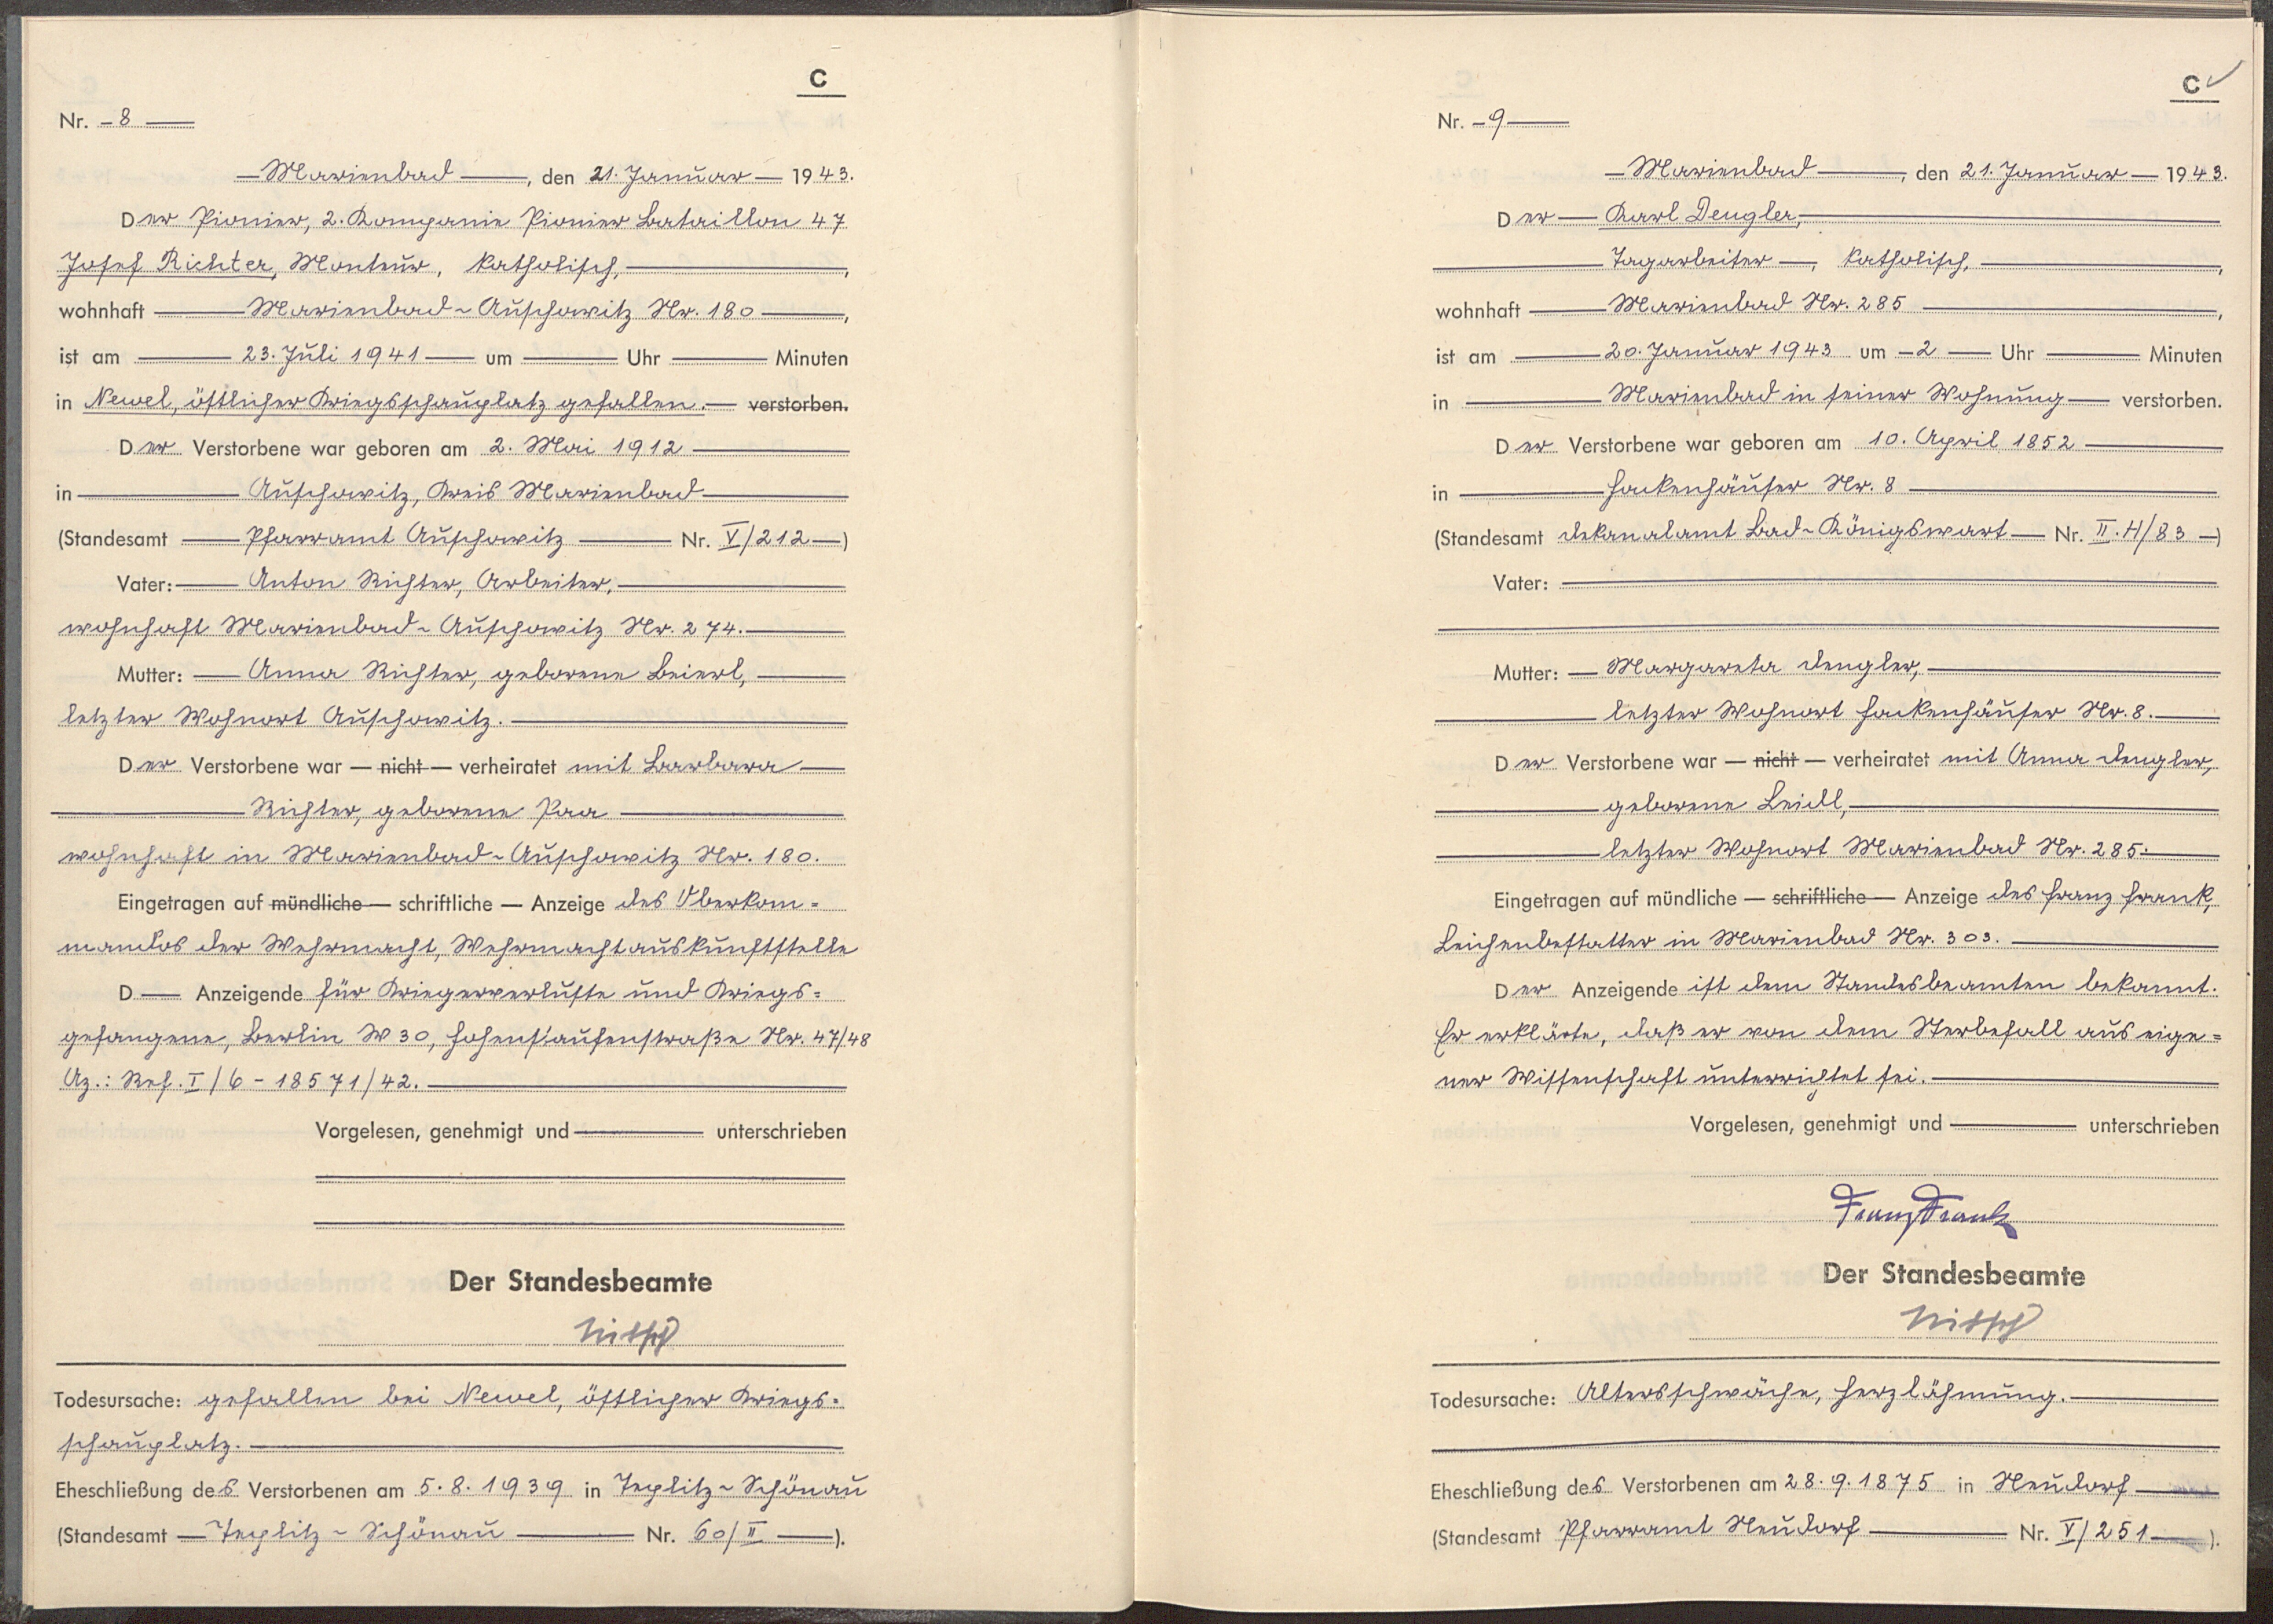 C
Nr. – 8 —
— Marienbad —, den 21. Januar — 1943.
Der Pionier, 2. Kompanie Pionier Bataillon 47
Josef Richter, Monteur, katholisch, —,
wohnhaft — Marienbad-Auschowitz Nr. 180 —,
ist am — 23. Juli 1941 — um — Uhr — Minuten
in Newel, östlicher Kriegsschauplatz gefallen. — verstorben.
Der Verstorbene war geboren am 2. Mai 1912 —
in — Auschowitz, Kreis Marienbad —
(Standesamt — Pfarramt Auschowitz — Nr. V/212 —)
Vater: — Anton Richter, Arbeiter, —
wohnhaft Marienbad-Auschowitz Nr. 274. —
Mutter: — Anna Richter, geborene Beierl, —
letzter Wohnort Auschowitz. —
Der Verstorbene war — nicht — verheiratet mit Barbara —
— Richter, geborene Paa —
wohnhaft in Marienbad-Auschowitz Nr. 180.
Eingetragen auf mündliche — schriftliche — Anzeige des Oberkom=
mandos der Wehrmacht, Wehrmachtauskunftstelle
D — Anzeigende für Kriegerverluste und Kriegs=
gefangene, Berlin W 30, Hohenstaufenstraße Nr. 47/48
Az.: Ref. I/6 - 18571/42. —
Vorgelesen, genehmigt und — unterschrieben
Der Standesbeamte
Nitsch
Todesursache: gefallen bei Newel, östlicher Kriegs=
schauplatz. —
Eheschließung des Verstorbenen am 5.8.1939 in Teplitz-Schönau
(Standesamt — Teplitz-Schönau — Nr. 60/II —).
C
Nr. – 9 —
— Marienbad —, den 21. Januar — 1943.
Der — Karl Dengler, —
— Tagarbeiter —, katholisch, —,
wohnhaft — Marienbad Nr. 285 —,
ist am — 20. Januar 1943 um – 2 — Uhr — Minuten
in — Marienbad in seiner Wohnung — verstorben.
Der Verstorbene war geboren am 10. April 1852 —
in — Hackenhäuser Nr. 8 —
(Standesamt Dekanalamt Bad-Königswart — Nr. II.H/83 —)
Vater: —
Mutter: — Margareta Dengler, —
— letzter Wohnort Hackenhäuser Nr. 8. —
Der Verstorbene war — nicht — verheiratet mit Anna Dengler,
— geborene Leidl, —
— letzter Wohnort Marienbad Nr. 285. —
Eingetragen auf mündliche — schriftliche — Anzeige des Franz Frank,
Leichenbestatter in Marienbad Nr. 303. —
Der Anzeigende ist dem Standesbeamten bekannt.
Er erklärte, daß er von dem Sterbefall aus eige=
ner Wissenschaft unterrichtet sei. —
Vorgelesen, genehmigt und — unterschrieben
Franz Frank
Der Standesbeamte
Nitsch
Todesursache: Altersschwäche, Herzlähmung. —
Eheschließung des Verstorbenen am 28.9.1875 in Neudorf —
(Standesamt Pfarramt Neudorf — Nr. V/251 —).